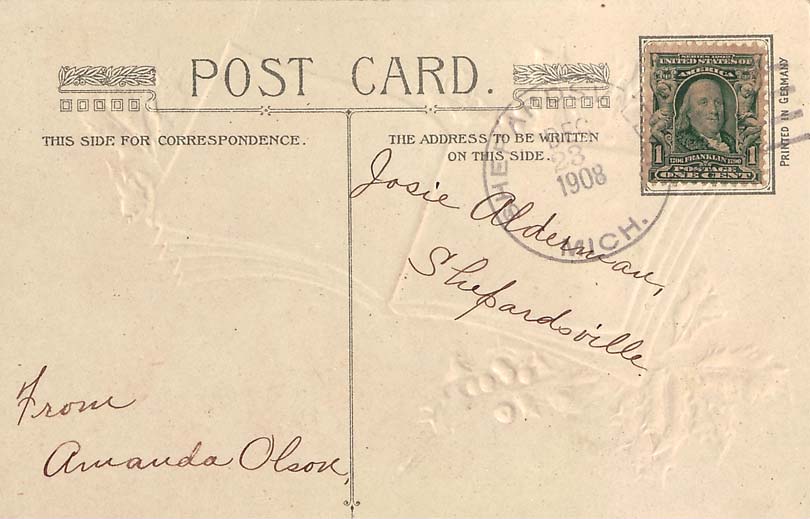 POST CARD.
THIS SIDE FOR CORRESPONDENCE.
THE ADDRESS TO BE WRITTEN
ON THIS SIDE.
SERIES 1902
UNITED STATES OF
AMERICA
1706 FRANKLIN 1790
1 POSTAGE 1
ONE CENT
PRINTED IN GERMANY
DEC
23
1908
MICH.
Josie Alderman,
Shepardsville.
From
Amanda Olson,